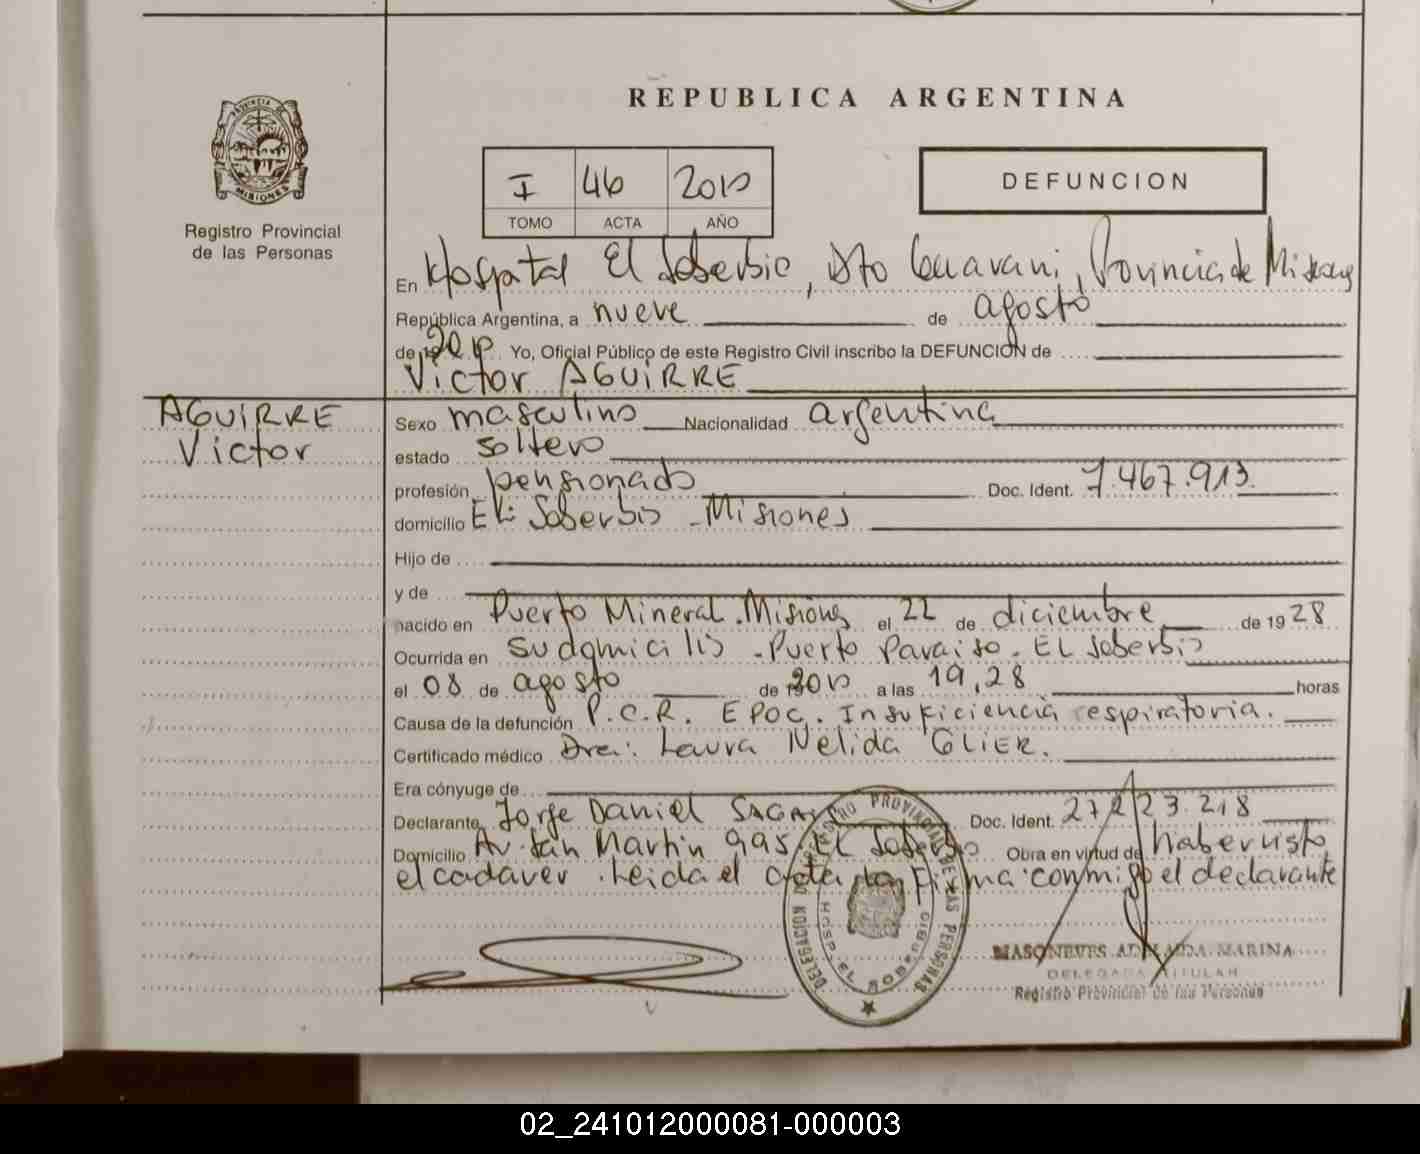 REPUBLICA ARGENTINA
PROVINCIA DE
MISIONES
Registro Provincial
de las Personas
I 46 2010
TOMO ACTA AÑO
DEFUNCION
En Hospital El Soberbio, Dto Guarani, Provincia de Misiones
República Argentina, a nueve de agosto
de 2010 Yo, Oficial Público de este Registro Civil inscribo la DEFUNCIÓN de
Victor AGUIRRE
AGUIRRE
Victor
Sexo masculino Nacionalidad argentina
estado soltero
profesión pensionado Doc. Ident. 7.467.913.
domicilio El Soberbio - Misiones
Hijo de
y de
nacido en Puerto Mineral. Misiones el 22 de diciembre de 1928
Ocurrida en su domicilio - Puerto Paraiso. EL Soberbio
el 08 de agosto de 2010 a las 19,28 horas
Causa de la defunción P.C.R. EPOC. Insuficiencia respiratoria.
Certificado médico Dra: Laura Nelida GLIER.
Era cónyuge de
Declarante Jorge Daniel Doc. Ident. 27.223.218
Domicilio Av. San Martin 995 El Soberbio Obra en virtud de haber visto
el cadaver. Leida el acta la firma conmigo el declarante
DELEGACION DEL REGISTRO PROVINCIAL DE LAS PERSONAS
HOSP. EL SOBERBIO
MASONEVES ADELAIDA MARINA
DELEGADA TITULAR
Registro Provincial de las Personas
02_241012000081-000003